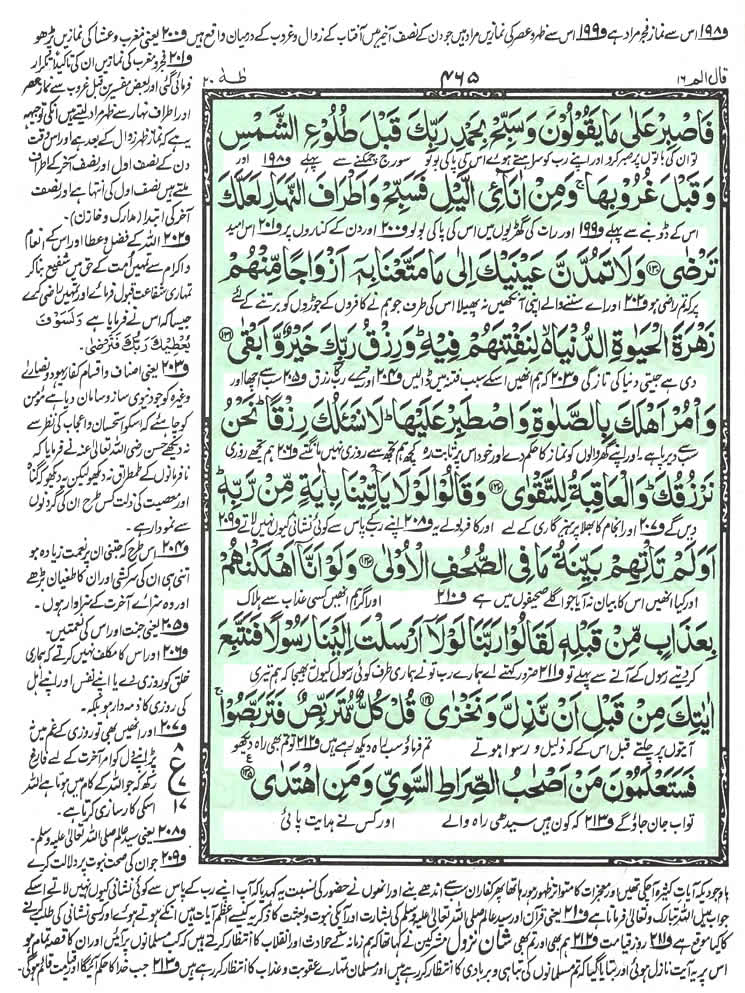 و۱۹۸ اس سے نماز فجر مراد ہے و۱۹۹ اس سے ظہر و عصر کی نمازیں مراد ہیں جو دن کے نصف آخر میں آفتاب کے زوال و غروب کے درمیان واقع ہیں و۲۰۰ یعنی مغرب و عشا کی نمازیں پڑھو
قال الم ۱۶
۴۶۵
طٰہٰ ۲۰
فَاصْبِرْ عَلٰى مَا يَقُوْلُوْنَ وَسَبِّحْ بِحَمْدِ رَبِّكَ قَبْلَ طُلُوْعِ الشَّمْسِ
تو ان کی باتوں پر صبر کرو اور اپنے رب کو سراہتے ہوئے اس کی پاکی بولو سورج چمکنے سے پہلے و۱۹۸ اور
وَقَبْلَ غُرُوْبِهَا ۚ وَمِنْ اٰنَآئِ الَّيْلِ فَسَبِّحْ وَاَطْرَافَ النَّهَارِ لَعَلَّكَ
اس کے ڈوبنے سے پہلے و۱۹۹ اور رات کی گھڑیوں میں اس کی پاکی بولو و۲۰۰ اور دن کے کناروں پر و۲۰۱ اس امید
تَرْضٰى ﴿۱۳۰﴾ وَلَا تَمُدَّنَّ عَيْنَيْكَ اِلٰى مَا مَتَّعْنَا بِهٖٓ اَزْوَاجًا مِّنْهُمْ
پر کہ تم راضی ہو و۲۰۲ اور اے سننے والے اپنی آنکھیں نہ پھیلا اس کی طرف جو ہم نے کافروں کے جوڑوں کو برتنے کے لئے
زَهْرَةَ الْحَيٰوةِ الدُّنْيَا ۙ لِنَفْتِنَهُمْ فِيْهِ ۭ وَرِزْقُ رَبِّكَ خَيْرٌ وَّاَبْقٰى ﴿۱۳۱﴾
دی ہے جیتی دنیا کی تازگی و۲۰۳ کہ ہم انھیں اس کے سبب فتنہ میں ڈالیں و۲۰۴ اور تیرے رب کا رزق و۲۰۵ سب سے اچھا اور
وَاْمُرْ اَهْلَكَ بِالصَّلٰوةِ وَاصْطَبِرْ عَلَيْهَا ۭ لَا نَسْــَٔلُكَ رِزْقًا ۭ نَحْنُ
سب سے دیرپا ہے ۔ اور اپنے گھر والوں کو نماز کا حکم دے اور خود اس پر ثابت رہ کچھ ہم تجھ سے روزی نہیں مانگتے و۲۰۶ ہم تجھے روزی
نَرْزُقُكَ ۭ وَالْعَاقِبَةُ لِلتَّقْوٰى ﴿۱۳۲﴾ وَقَالُوْا لَوْلَا يَاْتِيْنَا بِاٰيَةٍ مِّنْ رَّبِّهٖ ۭ
دیں گے و۲۰۷ اور انجام کا بھلا پرہیزگاری کے لیے اور کافر بولے یہ و۲۰۸ اپنے رب کے پاس سے کوئی نشانی کیوں نہیں لاتے و۲۰۹
اَوَلَمْ تَاْتِهِمْ بَيِّنَةُ مَا فِي الصُّحُفِ الْاُوْلٰى ﴿۱۳۳﴾ وَلَوْ اَنَّآ اَهْلَكْنٰهُمْ
اور کیا انھیں اس کا بیان نہ آیا جو اگلے صحیفوں میں ہے و۲۱۰ اور اگر ہم انھیں کسی عذاب سے ہلاک
بِعَذَابٍ مِّنْ قَبْلِهٖ لَقَالُوْا رَبَّنَا لَوْلَآ اَرْسَلْتَ اِلَيْنَا رَسُوْلًا فَنَتَّبِعَ
کر دیتے رسول کے آنے سے پہلے تو و۲۱۱ ضرور کہتے اے ہمارے رب تو نے ہماری طرف کوئی رسول کیوں نہ بھیجا کہ ہم تیری
اٰيٰتِكَ مِنْ قَبْلِ اَنْ نَّذِلَّ وَنَخْزٰى ﴿۱۳۴﴾ قُلْ كُلٌّ مُّتَرَبِّصٌ فَتَرَبَّصُوْا ۚ
آیتوں پر چلتے قبل اس کے کہ ذلیل و رسوا ہوتے تم فرماؤ سب راہ دیکھ رہے ہیں و۲۱۲ تو تم بھی راہ دیکھو
فَسَتَعْلَمُوْنَ مَنْ اَصْحٰبُ الصِّرَاطِ السَّوِيِّ وَمَنِ اهْتَدٰى ﴿۱۳۵﴾
تو اب جان جاؤ گے و۲۱۳ کہ کون ہیں سیدھی راہ والے اور کس نے ہدایت پائی
و۲۰۱ فجر و مغرب کی نمازیں ان کی تاکیداً تکرار
فرمائی گئی اور بعض مفسرین قبل غروب سے نماز عصر
اور اطراف نہار سے ظہر مراد لیتے ہیں انکی توجیہہ
یہ ہے کہ نماز ظہر زوال کے بعد ہے اور اس وقت
دن کے نصف اول اور نصف آخر کے اطراف
ملتے ہیں نصف اول کی انتہا ہے اور نصف
آخر کی ابتدا (مدارک و خازن)۔
و۲۰۲ اللہ کے فضل و عطا اور اس کے انعام
و اکرام سے تمہیں امت کے حق میں شفیع بنا کر
تمہاری شفاعت قبول فرمائے اور تمہیں راضی کرے
جیسا کہ اس نے فرمایا ہے وَلَسَوْفَ
يُعْطِيْكَ رَبُّكَ فَتَرْضٰى۔
و۲۰۳ یعنی اصناف و اقسام کفار یہود و نصاریٰ
وغیرہ کو جو دنیوی ساز و سامان دیا ہے مؤمن
کو چاہئے کہ اسکو استحسان و اعجاب کی نظر سے
نہ دیکھے حسن رضی اللہ تعالیٰ عنہ نے فرمایا کہ
نافرمانوں کے طمطراق نہ دیکھو لیکن یہ دیکھو گناہ
اور معصیت کی ذلت کس طرح ان کی گردنوں
سے نمودار ہے۔
و۲۰۴ اس طرح کہ جتنی ان پر نعمت زیادہ ہو
اتنی ہی ان کی سرکشی اور ان کا طغیان بڑھے
اور وہ سزائے آخرت کے سزاوار ہوں۔
و۲۰۵ یعنی جنت اور اس کی نعمتیں۔
و۲۰۶ اور اس کا مکلف نہیں کرتے کہ ہماری
خلق کو روزی دے یا اپنے نفس اور اپنے اہل
کی روزی کا ذمہ دار ہو بلکہ۔
و۲۰۷ اور انھیں بھی تو روزی کے غم میں
نہ پڑ اپنے دل کو امر آخرت کے لیے فارغ
رکھ کہ جو اللہ کے کام میں ہوتا ہے اللہ
اسکی کارسازی کرتا ہے۔
۸
ع
۷
۱۷
و۲۰۸ یعنی سید عالم صلی اللہ تعالیٰ علیہ وسلم۔
و۲۰۹ جو ان کی صحت نبوت پر دلالت کرے
باوجودیکہ آیات کثیرہ آچکی تھیں اور معجزات کا متواتر ظہور ہو رہا تھا پھر کفار ان سے اندھے بنے اور انھوں نے حضور کی نسبت یہ کہدیا کہ آپ اپنے رب کے پاس سے کوئی نشانی کیوں نہیں لاتے اسکے
جواب میں اللہ تبارک و تعالیٰ فرماتا ہے و۲۱۰ یعنی قرآن اور سید عالم صلی اللہ تعالیٰ علیہ وسلم کی بشارت اور انکی نبوت و بعثت کا ذکر یہ کیسے عظیم آیات ہیں انکے ہوتے ہوئے اور کسی نشانی کی طلب کرنے
کا کیا موقع ہے و۲۱۱ روز قیامت و۲۱۲ ہم بھی اور تم بھی شان نزول مشرکین نے کہا تھا کہ ہم زمانہ کے حوادث اور انقلاب کا انتظار کرتے ہیں کہ کب مسلمانوں پر آئیں اور ان کا قصہ تمام ہو
اس پر یہ آیت نازل ہوئی اور بتایا گیا کہ تم مسلمانوں کی تباہی و بربادی کا انتظار کر رہے ہو اور مسلمان تمہارے عقوبت و عذاب کا انتظار کر رہے ہیں و۲۱۳ جب خدا کا حکم آئیگا اور قیامت قائم ہوگی۔